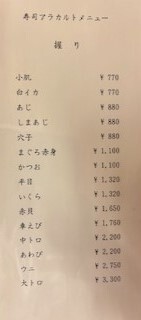 寿司アラカルトメニュー
握り
小肌 ¥770
白イカ ¥770
あじ ¥880
しまあじ ¥880
穴子 ¥880
まぐろ赤身 ¥1,100
かつお ¥1,100
平目 ¥1,320
いくら ¥1,320
赤貝 ¥1,650
車えび ¥1,760
中トロ ¥2,200
あわび ¥2,200
ウニ ¥2,750
大トロ ¥3,300